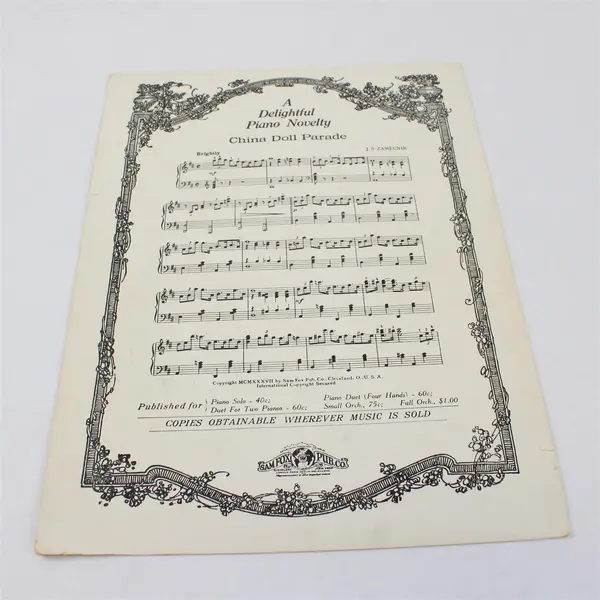 A
Delightful
Piano Novelty
China Doll Parade
Brightly
J. S. ZAMECNIK
Copyright MCMXXXVII by Sam Fox Pub. Co., Cleveland, O., U. S. A.
International Copyright Secured
Published for { Piano Solo - 40c; Piano Duet (Four Hands) - 60c;
Duet For Two Pianos - 60c; Small Orch., 75c; Full Orch., $1.00
COPIES OBTAINABLE WHEREVER MUSIC IS SOLD
SAM FOX PUB. CO.